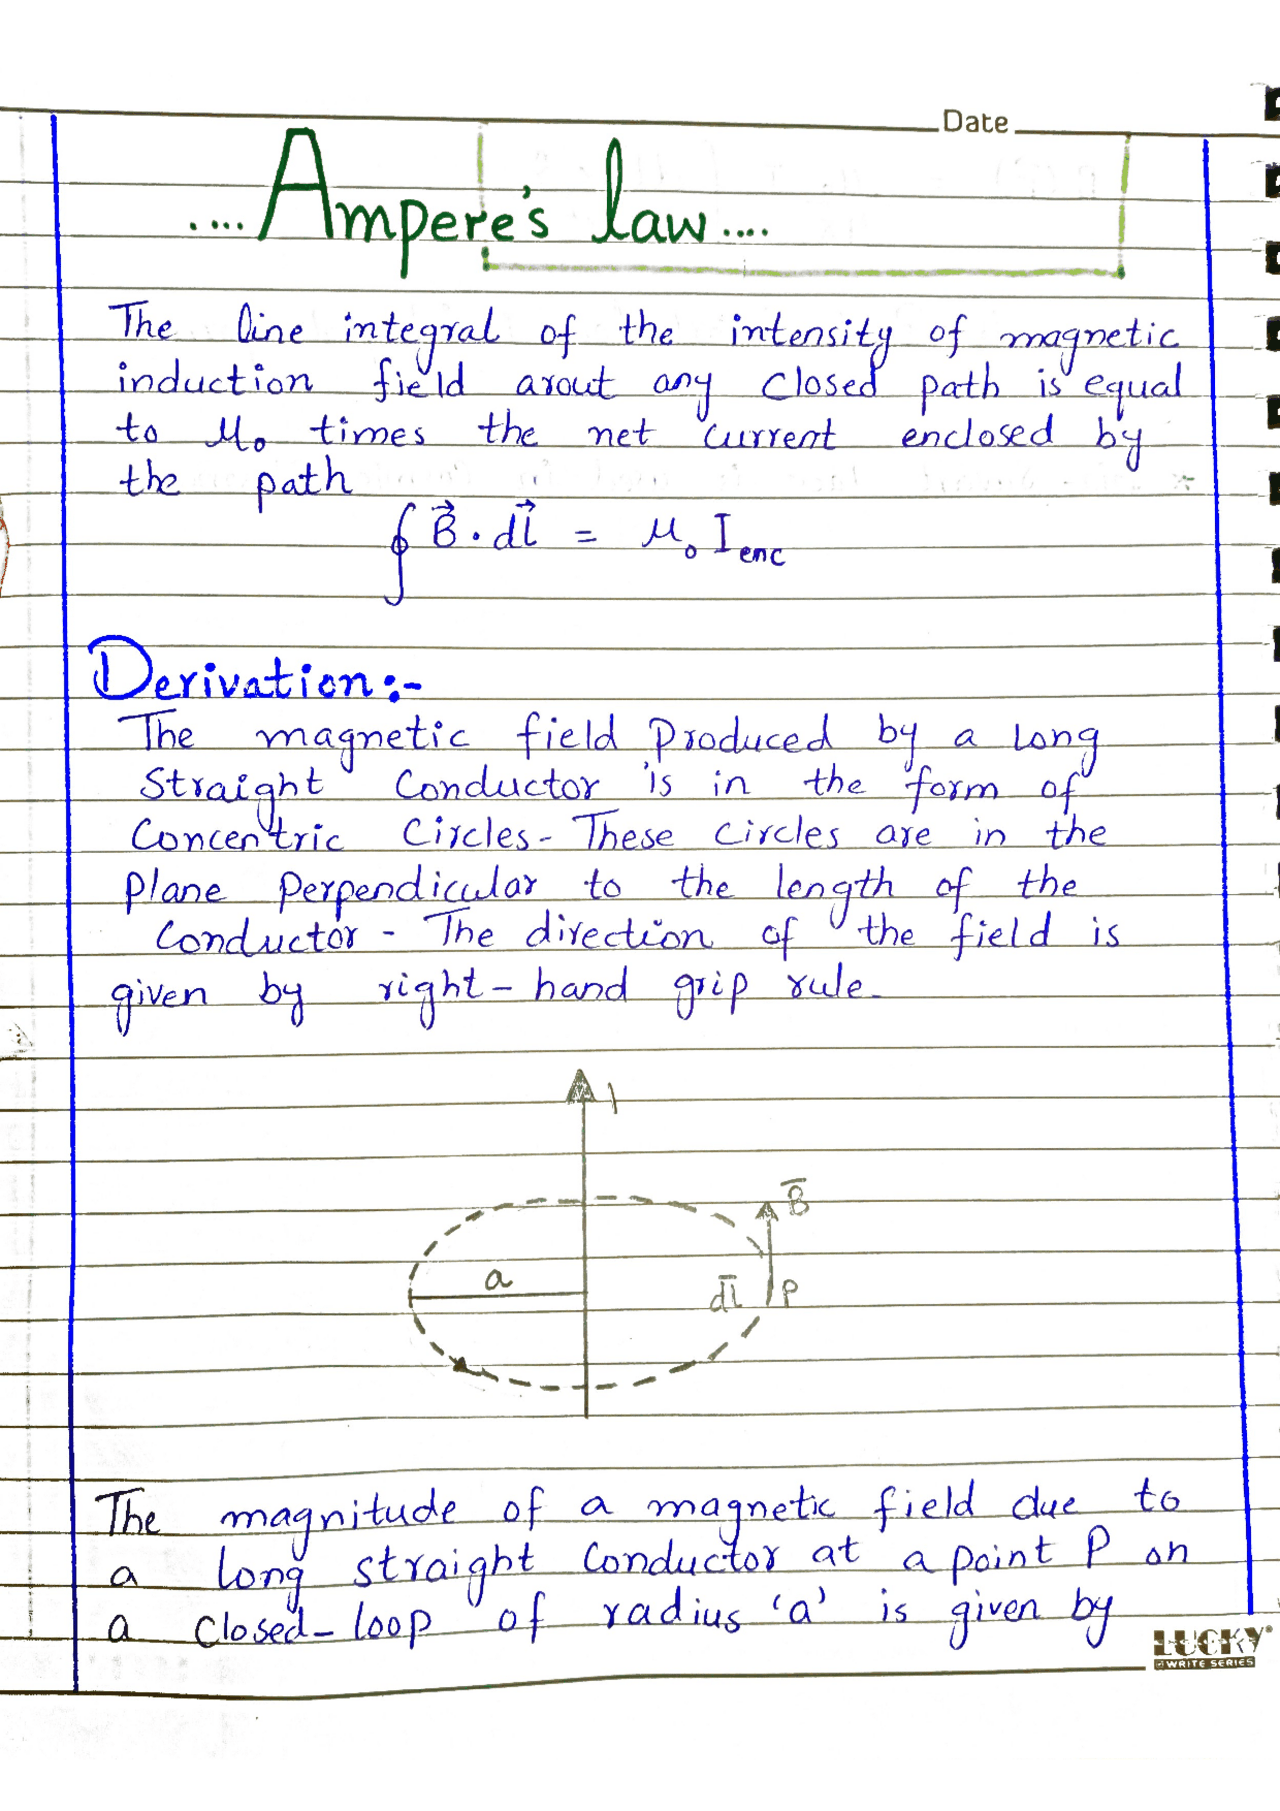 Date
....Ampere's law....
The line integral of the intensity of magnetic
induction field arout any closed path is equal
to μ₀ times the net current enclosed by
the path
∮ B⃗ · dl⃗ = μ₀ I enc
Derivation:-
The magnetic field Produced by a Long
Straight Conductor is in the form of
Concentric Circles- These circles are in the
Plane Perpendicular to the length of the
Conductor - The direction of the field is
given by right-hand grip rule-
I
B̅
a
dl̅ P
The magnitude of a magnetic field due to
a long straight Conductor at a point P on
a closed-loop of radius 'a' is given by
LUCKY®
WRITE SERIES